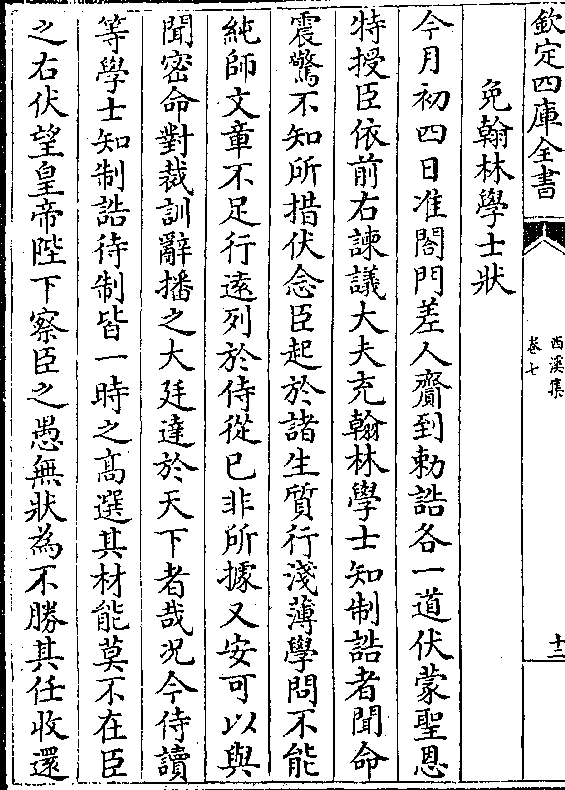 欽定四庫全書
西溪集
卷七
十二
免翰林學士狀
今月初四日准閤門差人齎到勅誥各一道伏蒙聖恩
特授臣依前右諫議大夫充翰林學士知制誥者聞命
震驚不知所措伏念臣起於諸生質行淺薄學問不能
純師文章不足行遠列於侍從已非所據又安可以與
聞密命對裁訓辭播之大廷達於天下者哉况今侍讀
等學士知制誥待制皆一時之髙選其材能莫不在臣
之右伏望皇帝陛下察臣之愚無狀為不勝其任收還